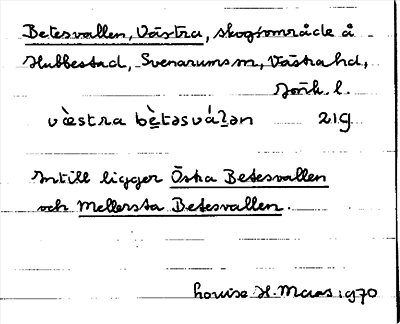 Betesvallen, Västra, skogsområde å
Hubbestad, Svenarums sn, Västra hd,
Jönk. l.
væ̀stra bè̱təsváḻən 219
Intill ligger Östra Betesvallen
och Mellersta Betesvallen.
Louise H. Maas 1970